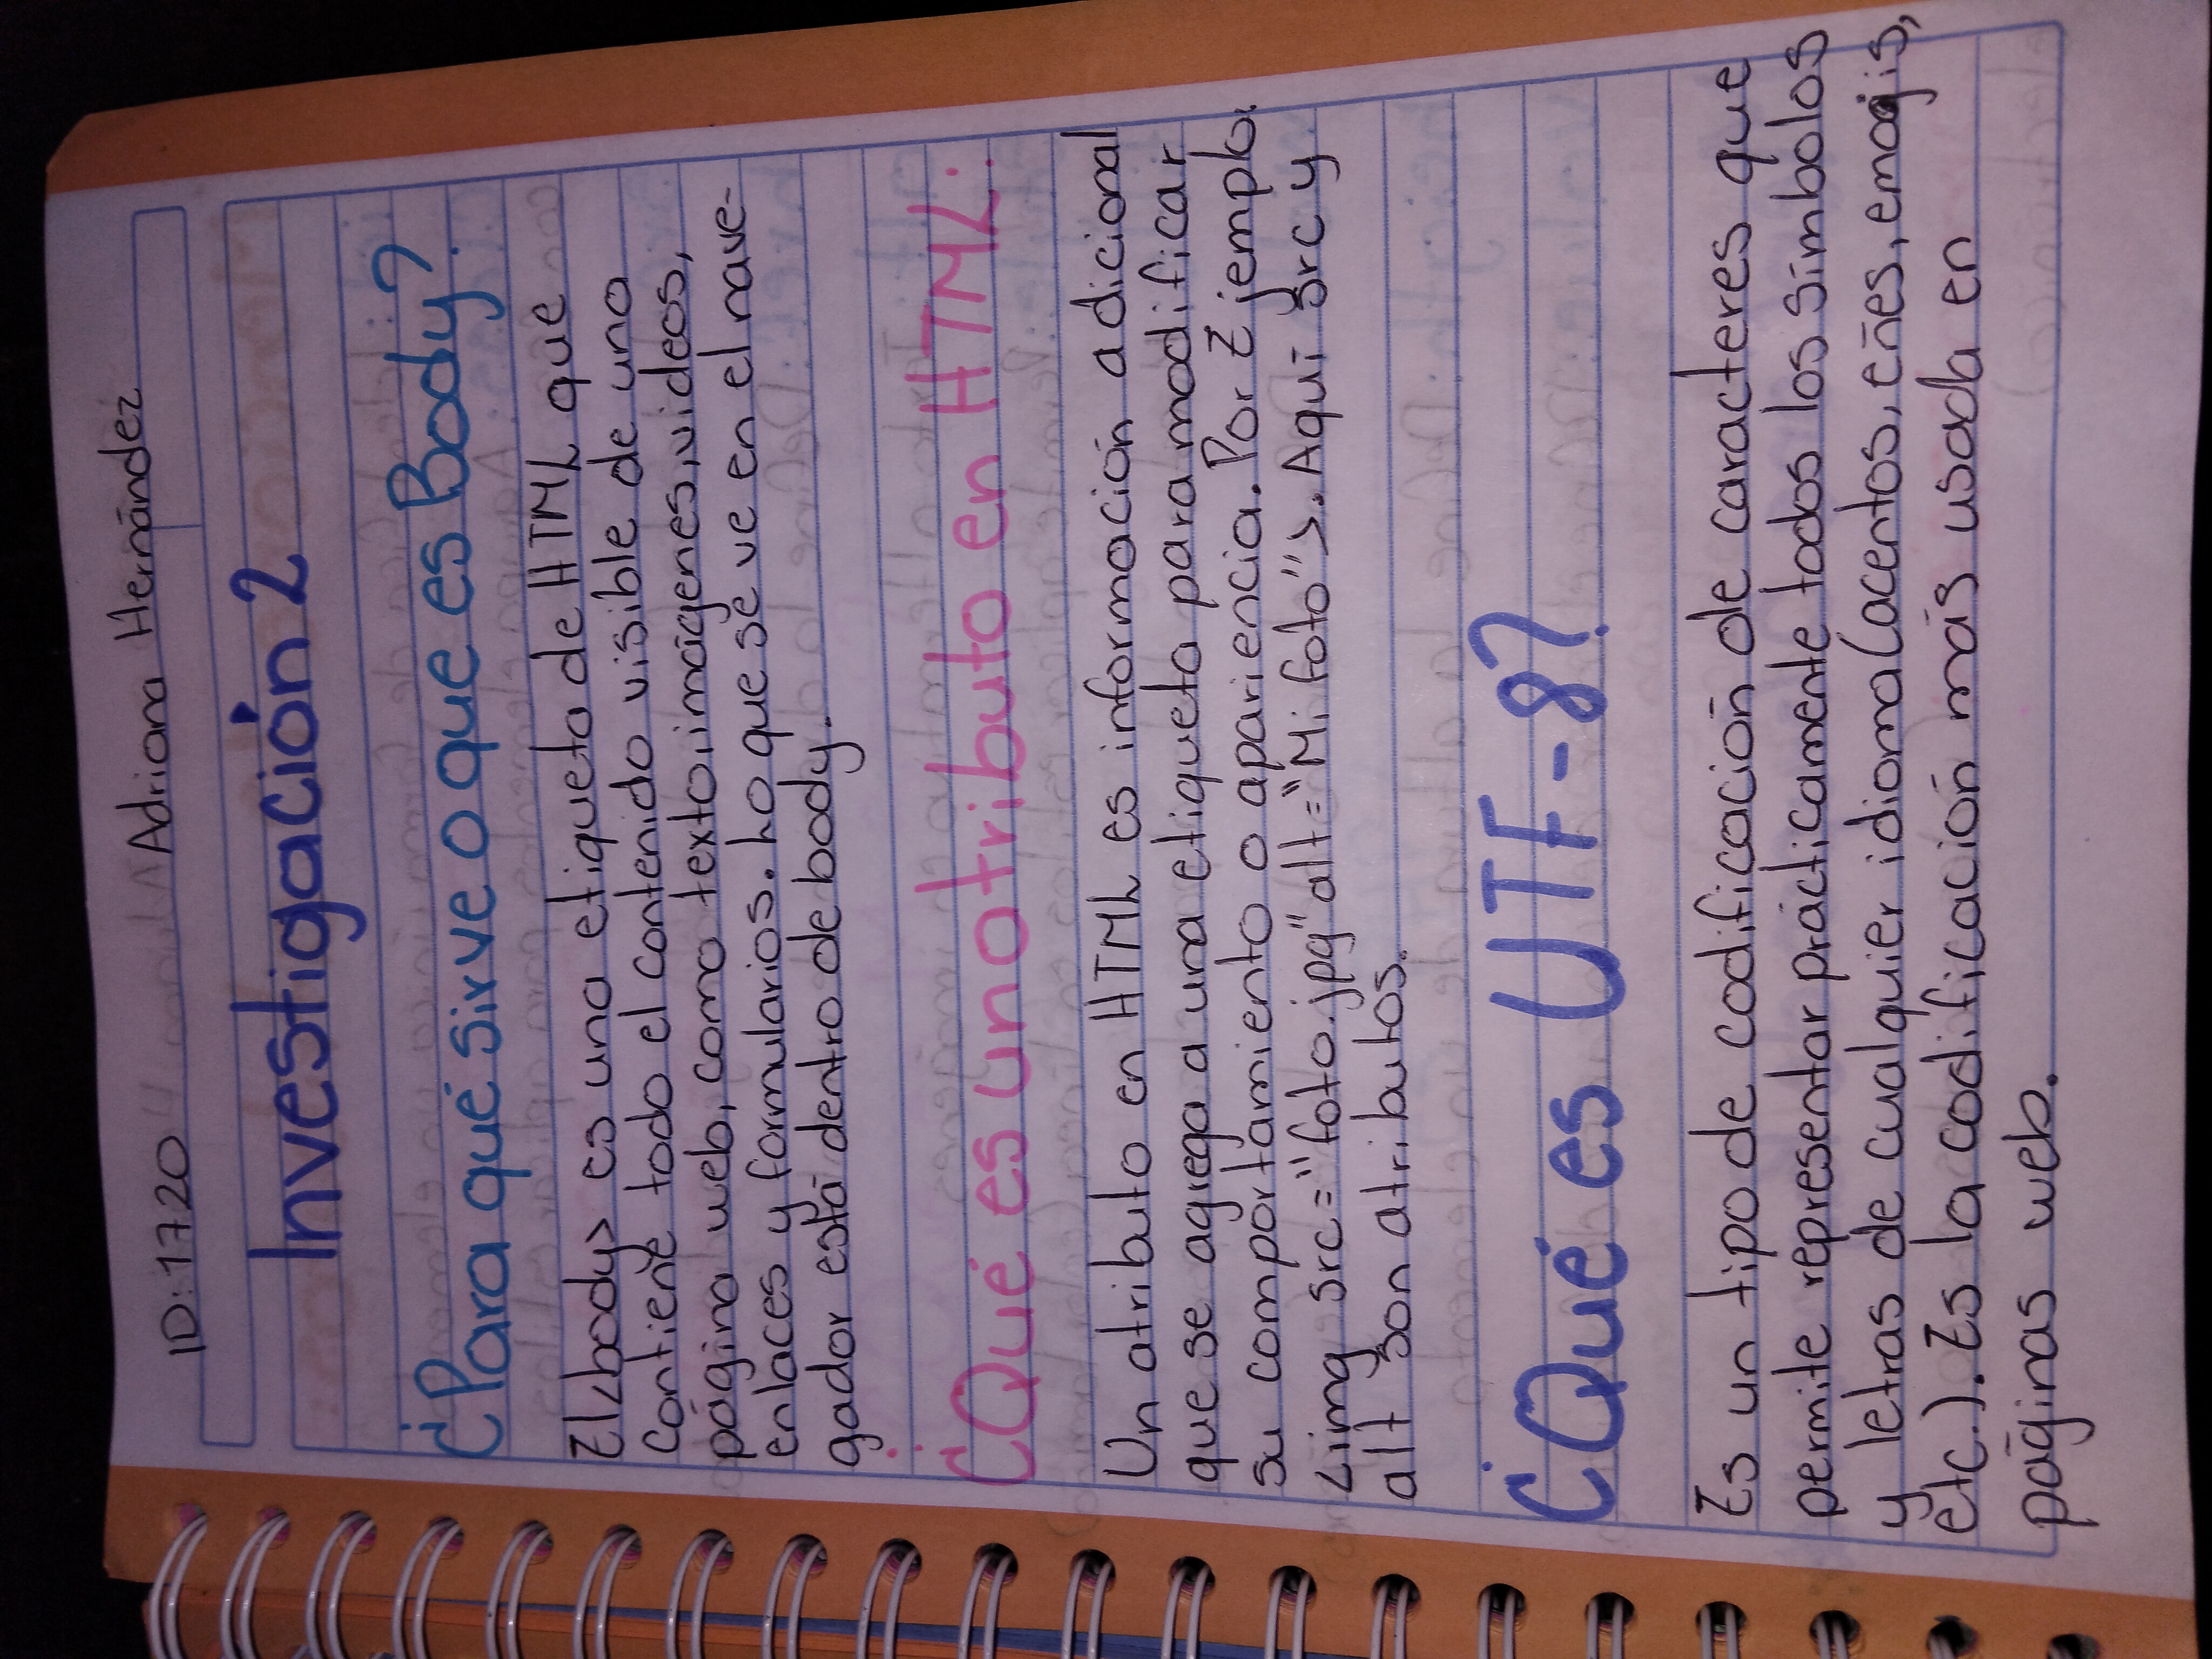 ID: 1720 Adriana Hernández
Investigación 2
¿Para qué sirve o que es Body?
El <body> es una etiqueta de HTML que
contiene todo el contenido visible de una
página web, como texto, imágenes, videos,
enlaces y formularios. Lo que se ve en el nave-
gador está dentro de body.
¿Qué es un atributo en HTML:
Un atributo en HTML es información adicional
que se agrega a una etiqueta para modificar
su comportamiento o apariencia. Por Ejemplo.
<img src="foto.jpg" alt="Mi foto">. Aquí src y
alt son atributos.
¿Qué es UTF-8?
Es un tipo de codificación de caracteres que
permite representar prácticamente todos los símbolos
y letras de cualquier idioma (acentos, eñes, emojis,
etc.). Es la codificación más usada en
páginas web.